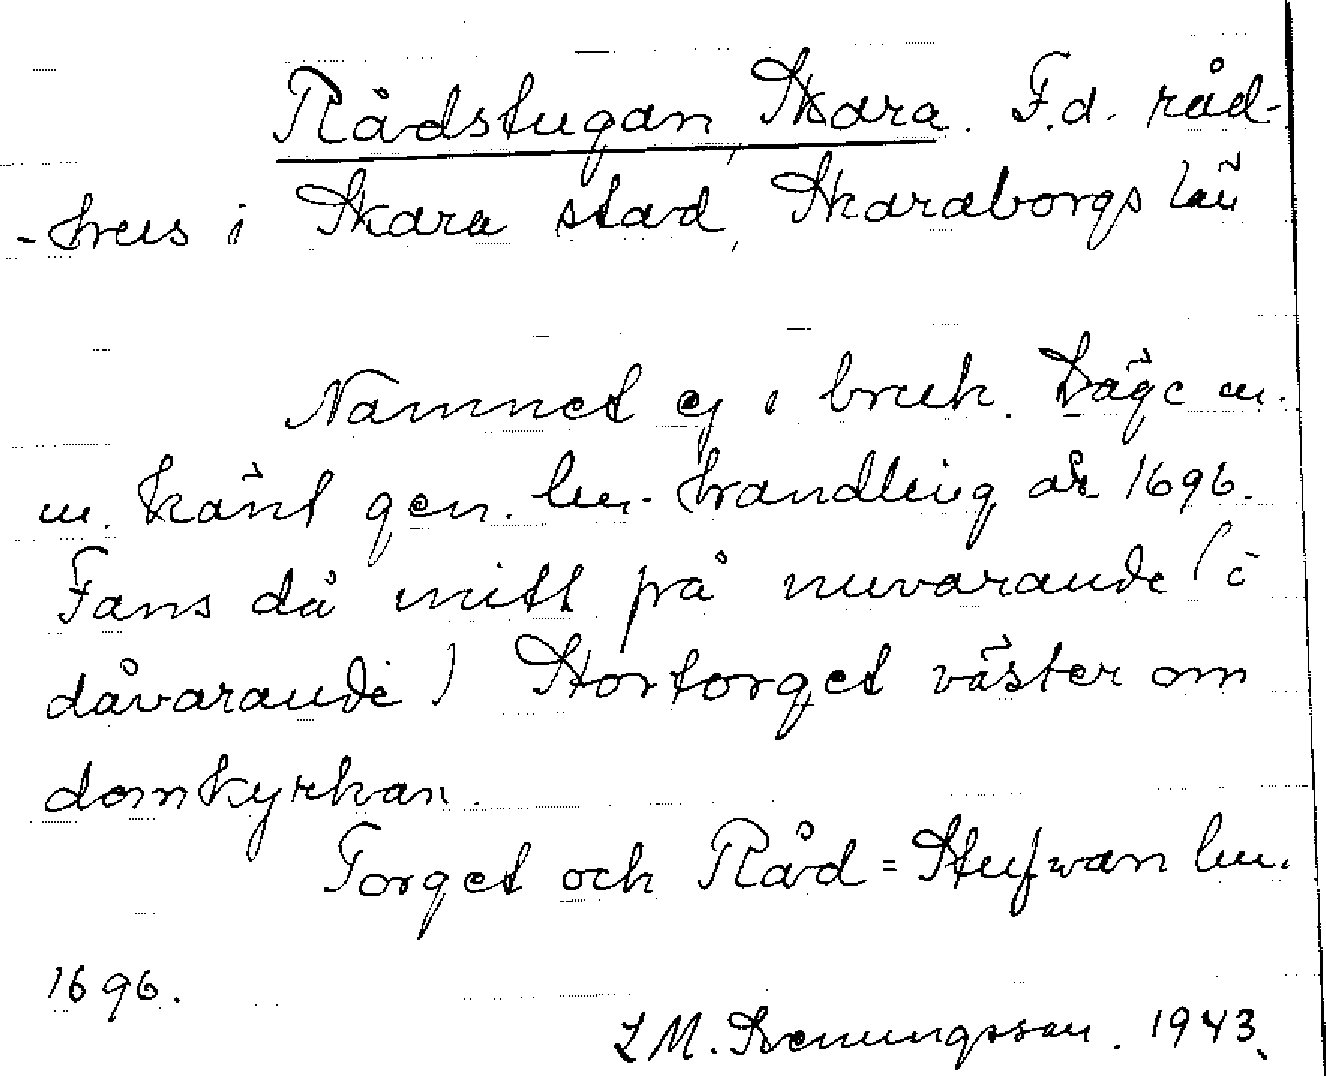 Rådstugan, Skara. F.d. råd-
-hus i Skara stad, Skaraborgs län
Namnet ej i bruk. Läge m.
m. känt gen. lm. handling år 1696.
Fans då mitt på nuvarande (o
dåvarande) Stortorget väster om
domkyrkan.
Torget och Råd=Stufwan lm.
1696.
L M. Svenungsson. 1943.